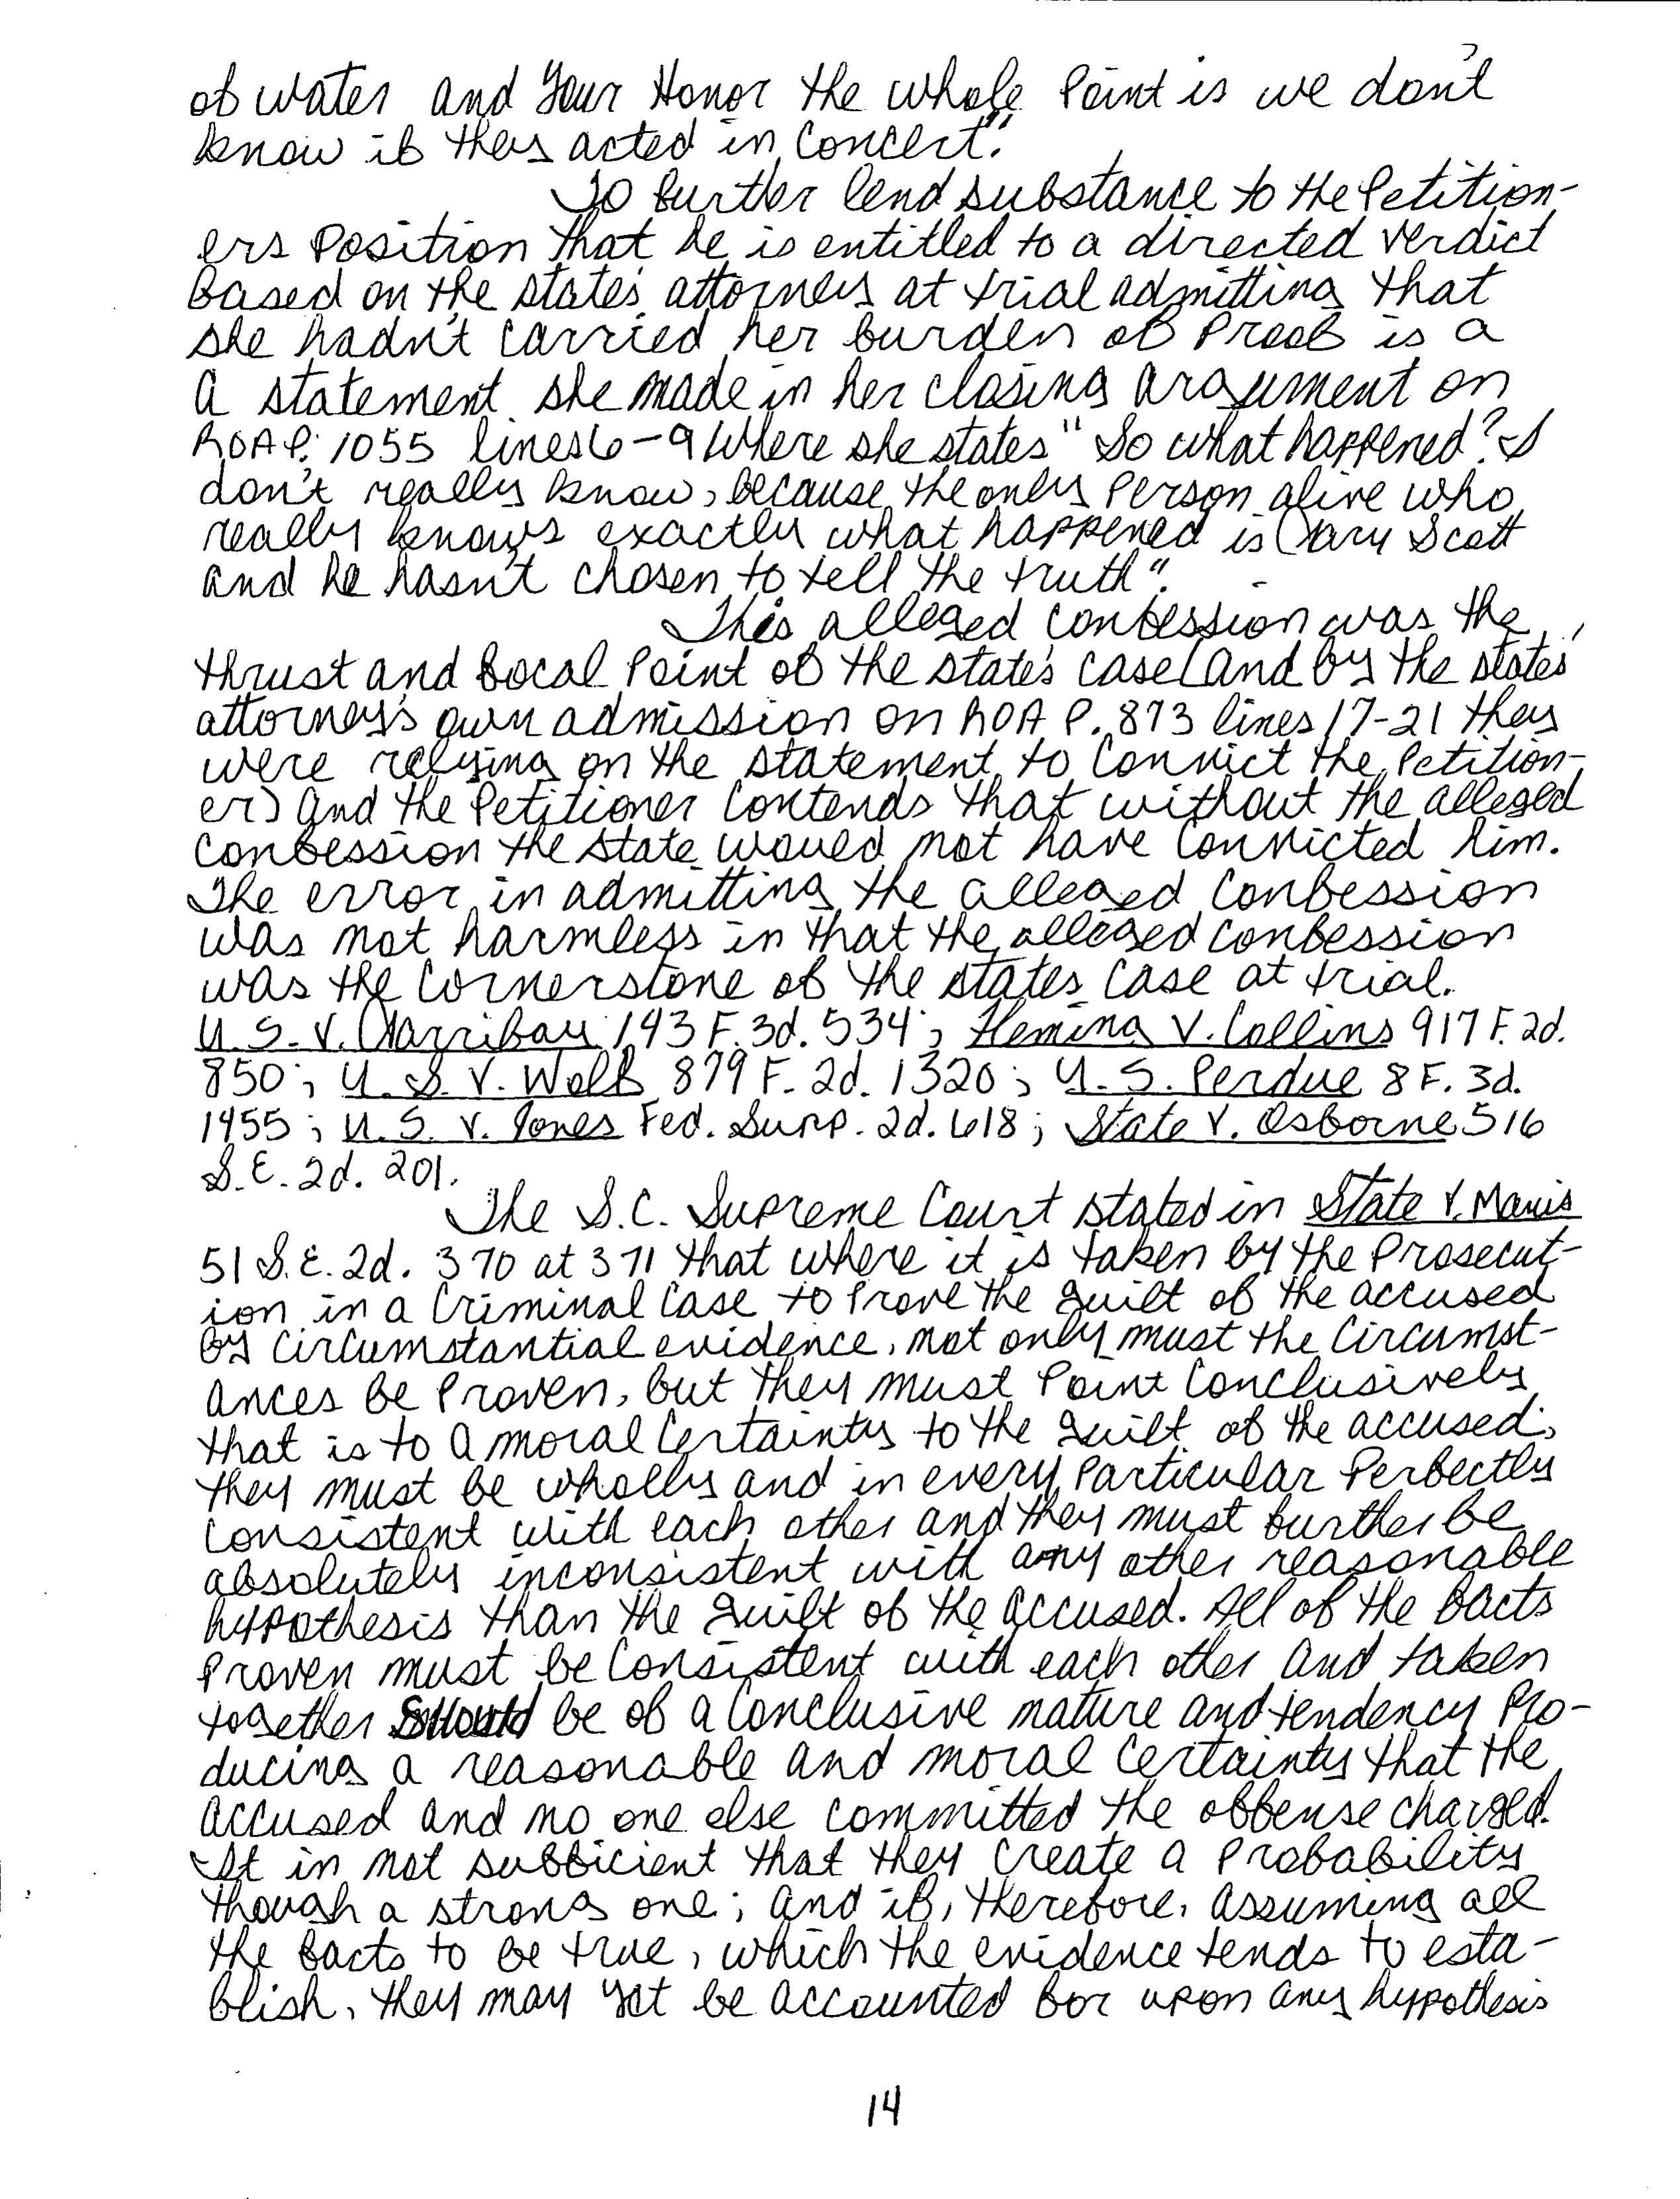 of water and Your Honor the whole Point is we don't
know if they acted in Concert".
To further lend substance to the Petition-
ers Position that he is entitled to a directed verdict
based on the state's attorney at trial admitting that
she hadn't carried her burden of Proof is a
a statement she made in her closing argument on
ROA P. 1055 lines 6-9 where she states "So what happened? I
don't really know, because the only Person alive who
really knows exactly what happened is Gary Scott
and he hasn't chosen to tell the truth".
This alleged confession was the
thrust and focal Point of the state's case (and by the states
attorney's own admission on ROA P. 873 lines 17-21 they
were relying on the statement to Convict the Petition-
er) and the Petitioner contends that without the alleged
confession the state would not have convicted him.
The error in admitting the alleged confession
was not harmless in that the alleged confession
was the cornerstone of the states case at trial.
U.S. v. Garribay 143 F. 3d. 534; Fleming v. Collins 917 F. 2d.
850; U.S. v. Wolf 879 F. 2d. 1320; U.S. Perdue 8 F. 3d.
1455; U.S. v. Jones Fed. Supp. 2d. 618; State v. Osborne 516
S.E. 2d. 201.
The S.C. Supreme Court stated in State v. Manis
51 S.E. 2d. 370 at 371 that where it is taken by the Prosecut-
ion in a Criminal Case to Prove the guilt of the accused
by circumstantial evidence, not only must the Circumst-
ances be Proven, but they must Point Conclusively
that is to a moral Certainty to the guilt of the accused,
they must be wholly and in every Particular Perfectly
consistent with each other and they must further be
absolutely inconsistent with any other reasonable
hypothesis than the guilt of the accused. All of the facts
Proven must be Consistent with each other and taken
together Should be of a Conclusive nature and tendency Pro-
ducing a reasonable and moral certainty that the
accused and no one else committed the offense charged.
It in not sufficient that they create a Probability
though a strong one; and if, therefore, assuming all
the facts to be true, which the evidence tends to esta-
blish, they may yet be accounted for upon any hypothesis
14